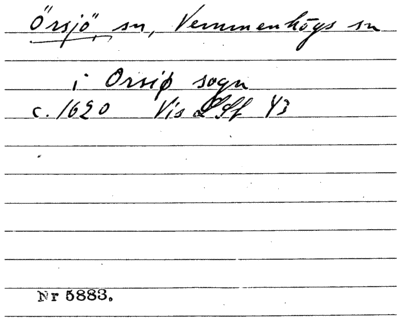 Örsjö, sn, Vemmenhögs sn
i Orsiø sogn
c. 1620 Vis LSt 43
Nr 5883.